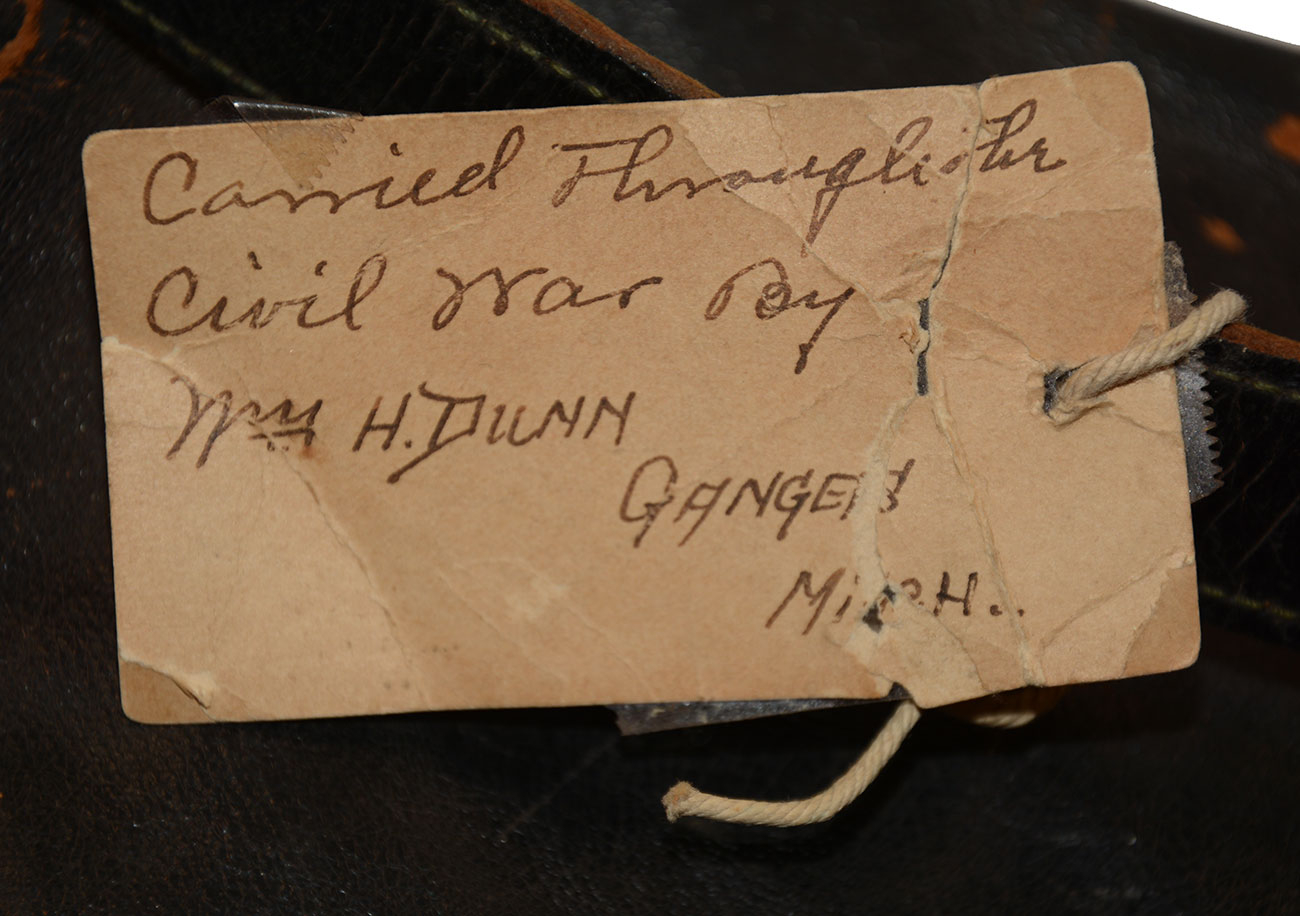 Carried Through the
Civil War By
Wm H. DUNN
GANGES
MICH..